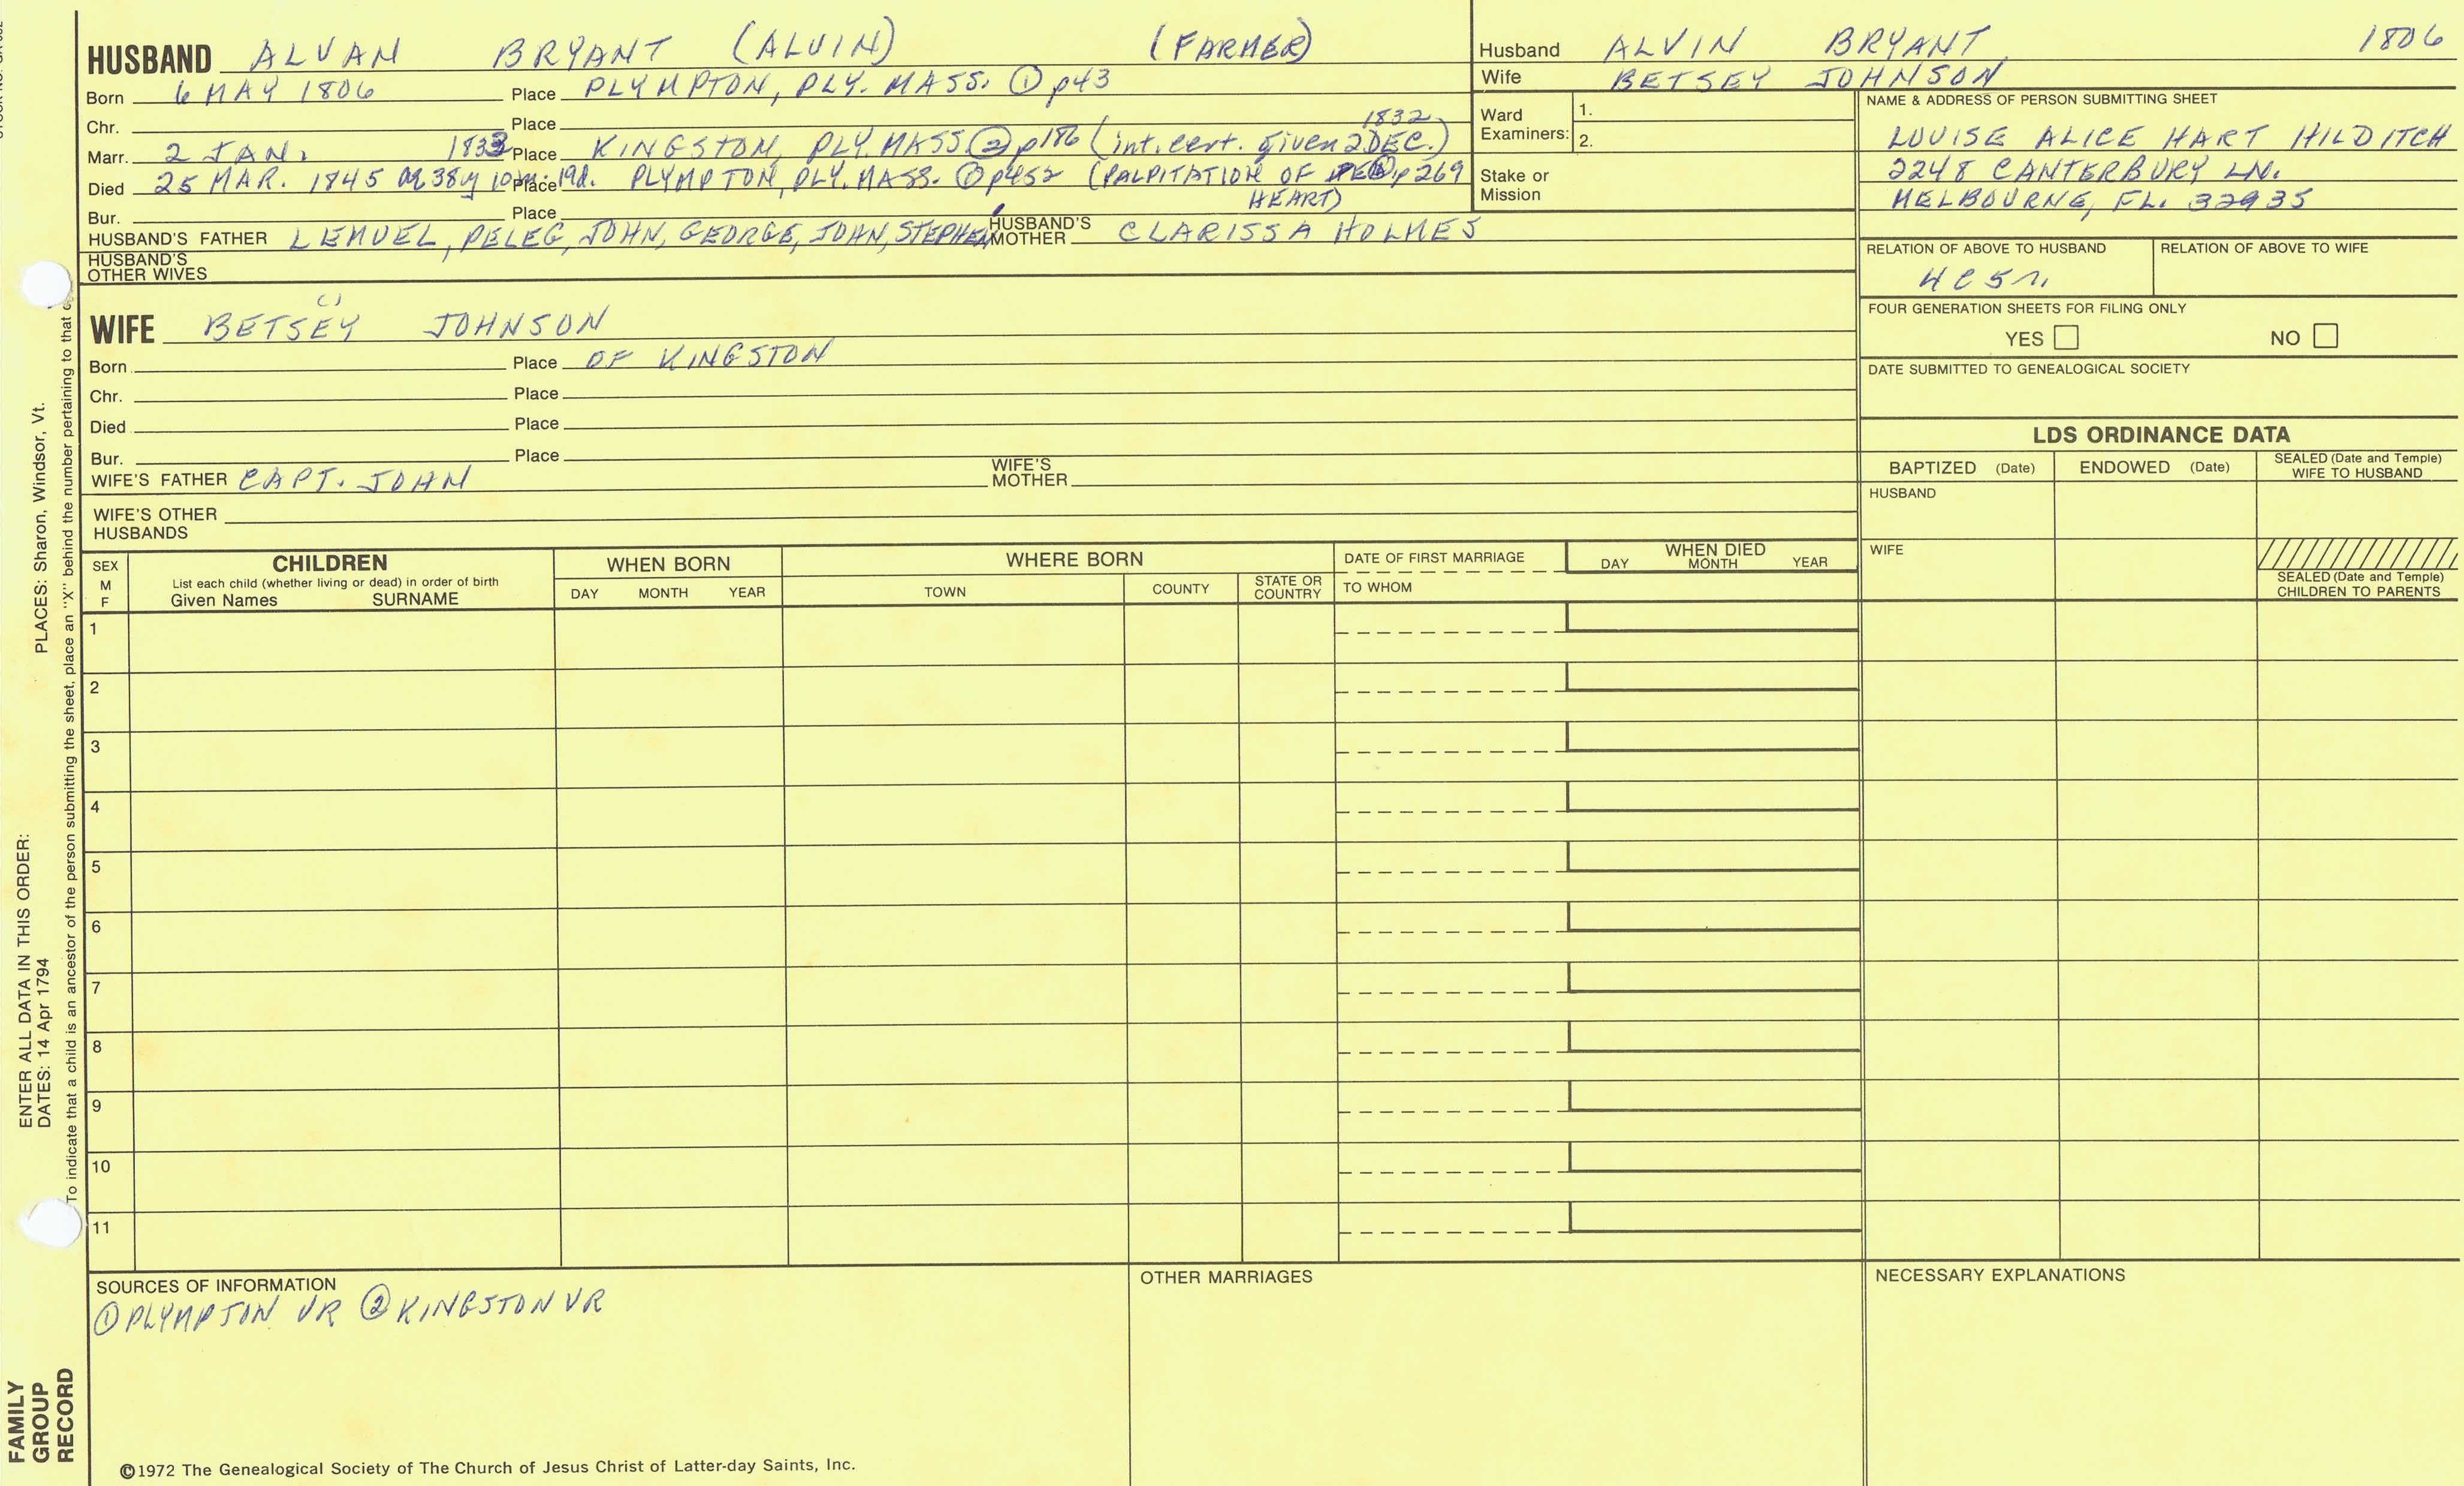 HUSBAND ALVAN BRYANT (ALVIN) (FARMER)
Born 6 MAY 1806 Place PLYMPTON, PLY. MASS. ① p43
Chr. Place
1832
Marr. 2 JAN. 1833 Place KINGSTON, PLY. MASS ② p186 (int. cert. given 2 DEC.)
Died 25 MAR. 1845 ag 38y 10m. 19d. Place PLYMPTON, PLY. MASS. ① p452 (PALPITATION OF HEART) p269
Bur. Place
HUSBAND'S FATHER LEMUEL, PELEG, JOHN, GEORGE, JOHN, STEPHEN HUSBAND'S MOTHER CLARISSA HOLMES
HUSBAND'S OTHER WIVES
Husband ALVIN BRYANT 1806
Wife BETSEY JOHNSON
Ward Examiners: 1.
2.
Stake or Mission
NAME & ADDRESS OF PERSON SUBMITTING SHEET
LOUISE ALICE HART HILDITCH
2248 CANTERBURY LN.
MELBOURNE, FL. 32935
RELATION OF ABOVE TO HUSBAND RELATION OF ABOVE TO WIFE
4C5r.
FOUR GENERATION SHEETS FOR FILING ONLY
YES NO
DATE SUBMITTED TO GENEALOGICAL SOCIETY
WIFE BETSEY JOHNSON
Born Place OF KINGSTON
Chr. Place
Died Place
Bur. Place
WIFE'S FATHER CAPT. JOHN WIFE'S MOTHER
WIFE'S OTHER HUSBANDS
LDS ORDINANCE DATA
BAPTIZED (Date) ENDOWED (Date) SEALED (Date and Temple) WIFE TO HUSBAND
HUSBAND
WIFE
SEALED (Date and Temple) CHILDREN TO PARENTS
SEX M F
CHILDREN
List each child (whether living or dead) in order of birth
Given Names SURNAME
WHEN BORN
DAY MONTH YEAR
WHERE BORN
TOWN COUNTY STATE OR COUNTRY
DATE OF FIRST MARRIAGE
TO WHOM
WHEN DIED
DAY MONTH YEAR
1
2
3
4
5
6
7
8
9
10
11
SOURCES OF INFORMATION
① PLYMPTON VR ② KINGSTON VR
OTHER MARRIAGES
NECESSARY EXPLANATIONS
©1972 The Genealogical Society of The Church of Jesus Christ of Latter-day Saints, Inc.
FAMILY GROUP RECORD
ENTER ALL DATA IN THIS ORDER:
DATES: 14 Apr 1794 PLACES: Sharon, Windsor, Vt.
To indicate that a child is an ancestor of the person submitting the sheet, place an "X" behind the number pertaining to that